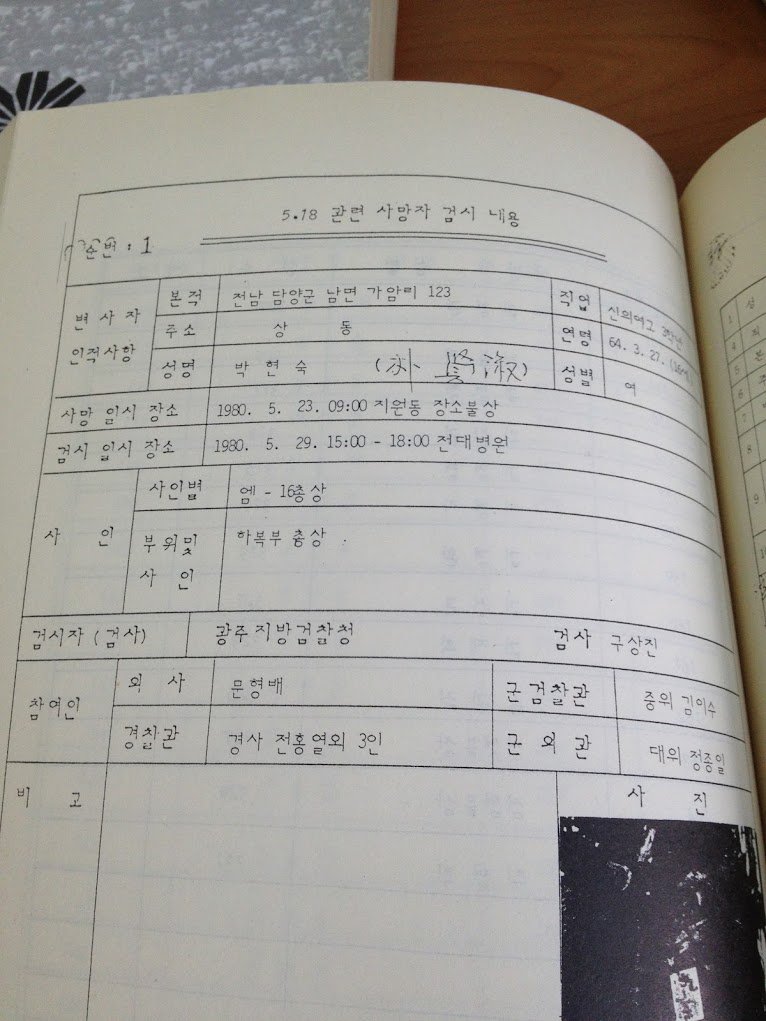 5.18 관련 사망자 검시 내용
순번 : 1
변 사 자 인적사항
본적 전남 담양군 남면 가암리 123 직업 신의여고 3학년
주소 상 동 연령 64. 3. 27. (16세)
성명 박 현 숙 (朴 賢 淑) 성별 여
사망 일시 장소 1980. 5. 23. 09:00 지원동 장소불상
검시 일시 장소 1980. 5. 29. 15:00 - 18:00 전대병원
사 인
사인별 엠 - 16총상
부위및 하복부 총상
사 인
검시자 (검사) 광주지방검찰청 검사 구상진
참여인
의 사 문형배 군검찰관 중위 김이수
경찰관 경사 전홍열외 3인 군 의 관 대위 정종일
비 고 사 진